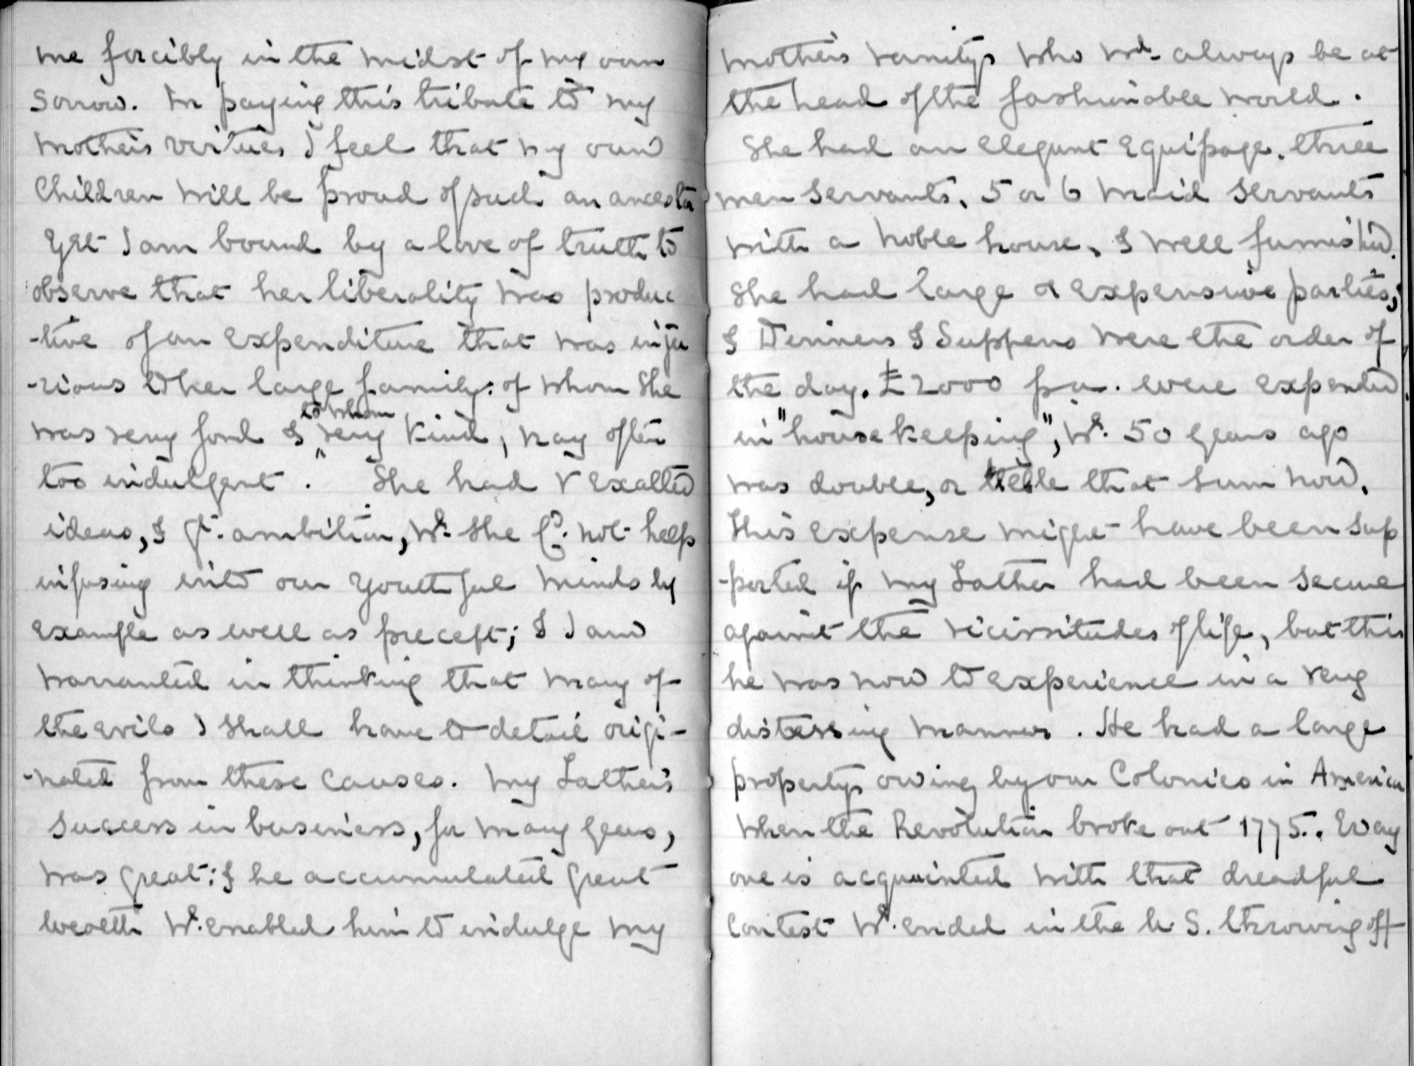 me forcibly in the midst of my own
sorrow. In paying this tribute to my
mother's virtues I feel that my own
Children will be proud of such an ancestor
Yet I am bound by a love of truth to
observe that her liberality was produc
-tive of an expenditure that was inju
-rious to her large family: of whom she
was very fond & to whom very kind, nay often
too indulgent. She had V exalted
ideas, & gt. ambition, wh. she cd. not help
infusing into our youthful minds by
example as well as precept; & I am
warranted in thinking that many of
the evils I shall have to detail origi-
-nated from these causes. My Father's
success in business, for many years,
was great: & he accumulated great
wealth wh. enabled him to indulge my
mother's vanity, who wd. always be at
the head of the fashionable world.
She had an elegant Equipage, three
men servants, 5 or 6 maid servants
with a noble house, & well furnished.
She had large & expensive parties,
& Dinners & Suppers were the order of
the day. £2000 p. an. were expended
in "housekeeping", wh. 50 years ago
was double, or treble that sum now.
This expense might have been sup
-ported if my Father had been secure
against the vicissitudes of life, but this
he was now to experience in a very
distressing manner. He had a large
property owing by our Colonies in America
when the Revolution broke out 1775. Every
one is acquainted with that dreadful
Contest wh. ended in the U.S. throwing off